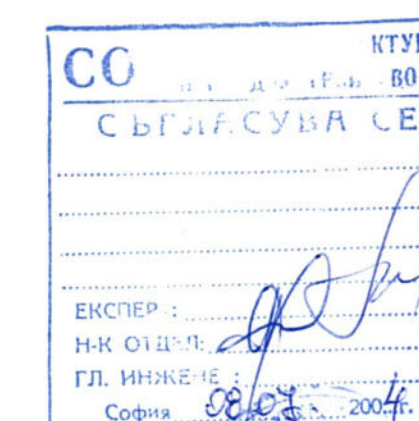 СО
СЪГЛАСУВА СЕ
ЕКСПЕР :
Н-К ОТДЕЛ:
ГЛ. ИНЖЕНЕ :
София 08.07. 2004г.